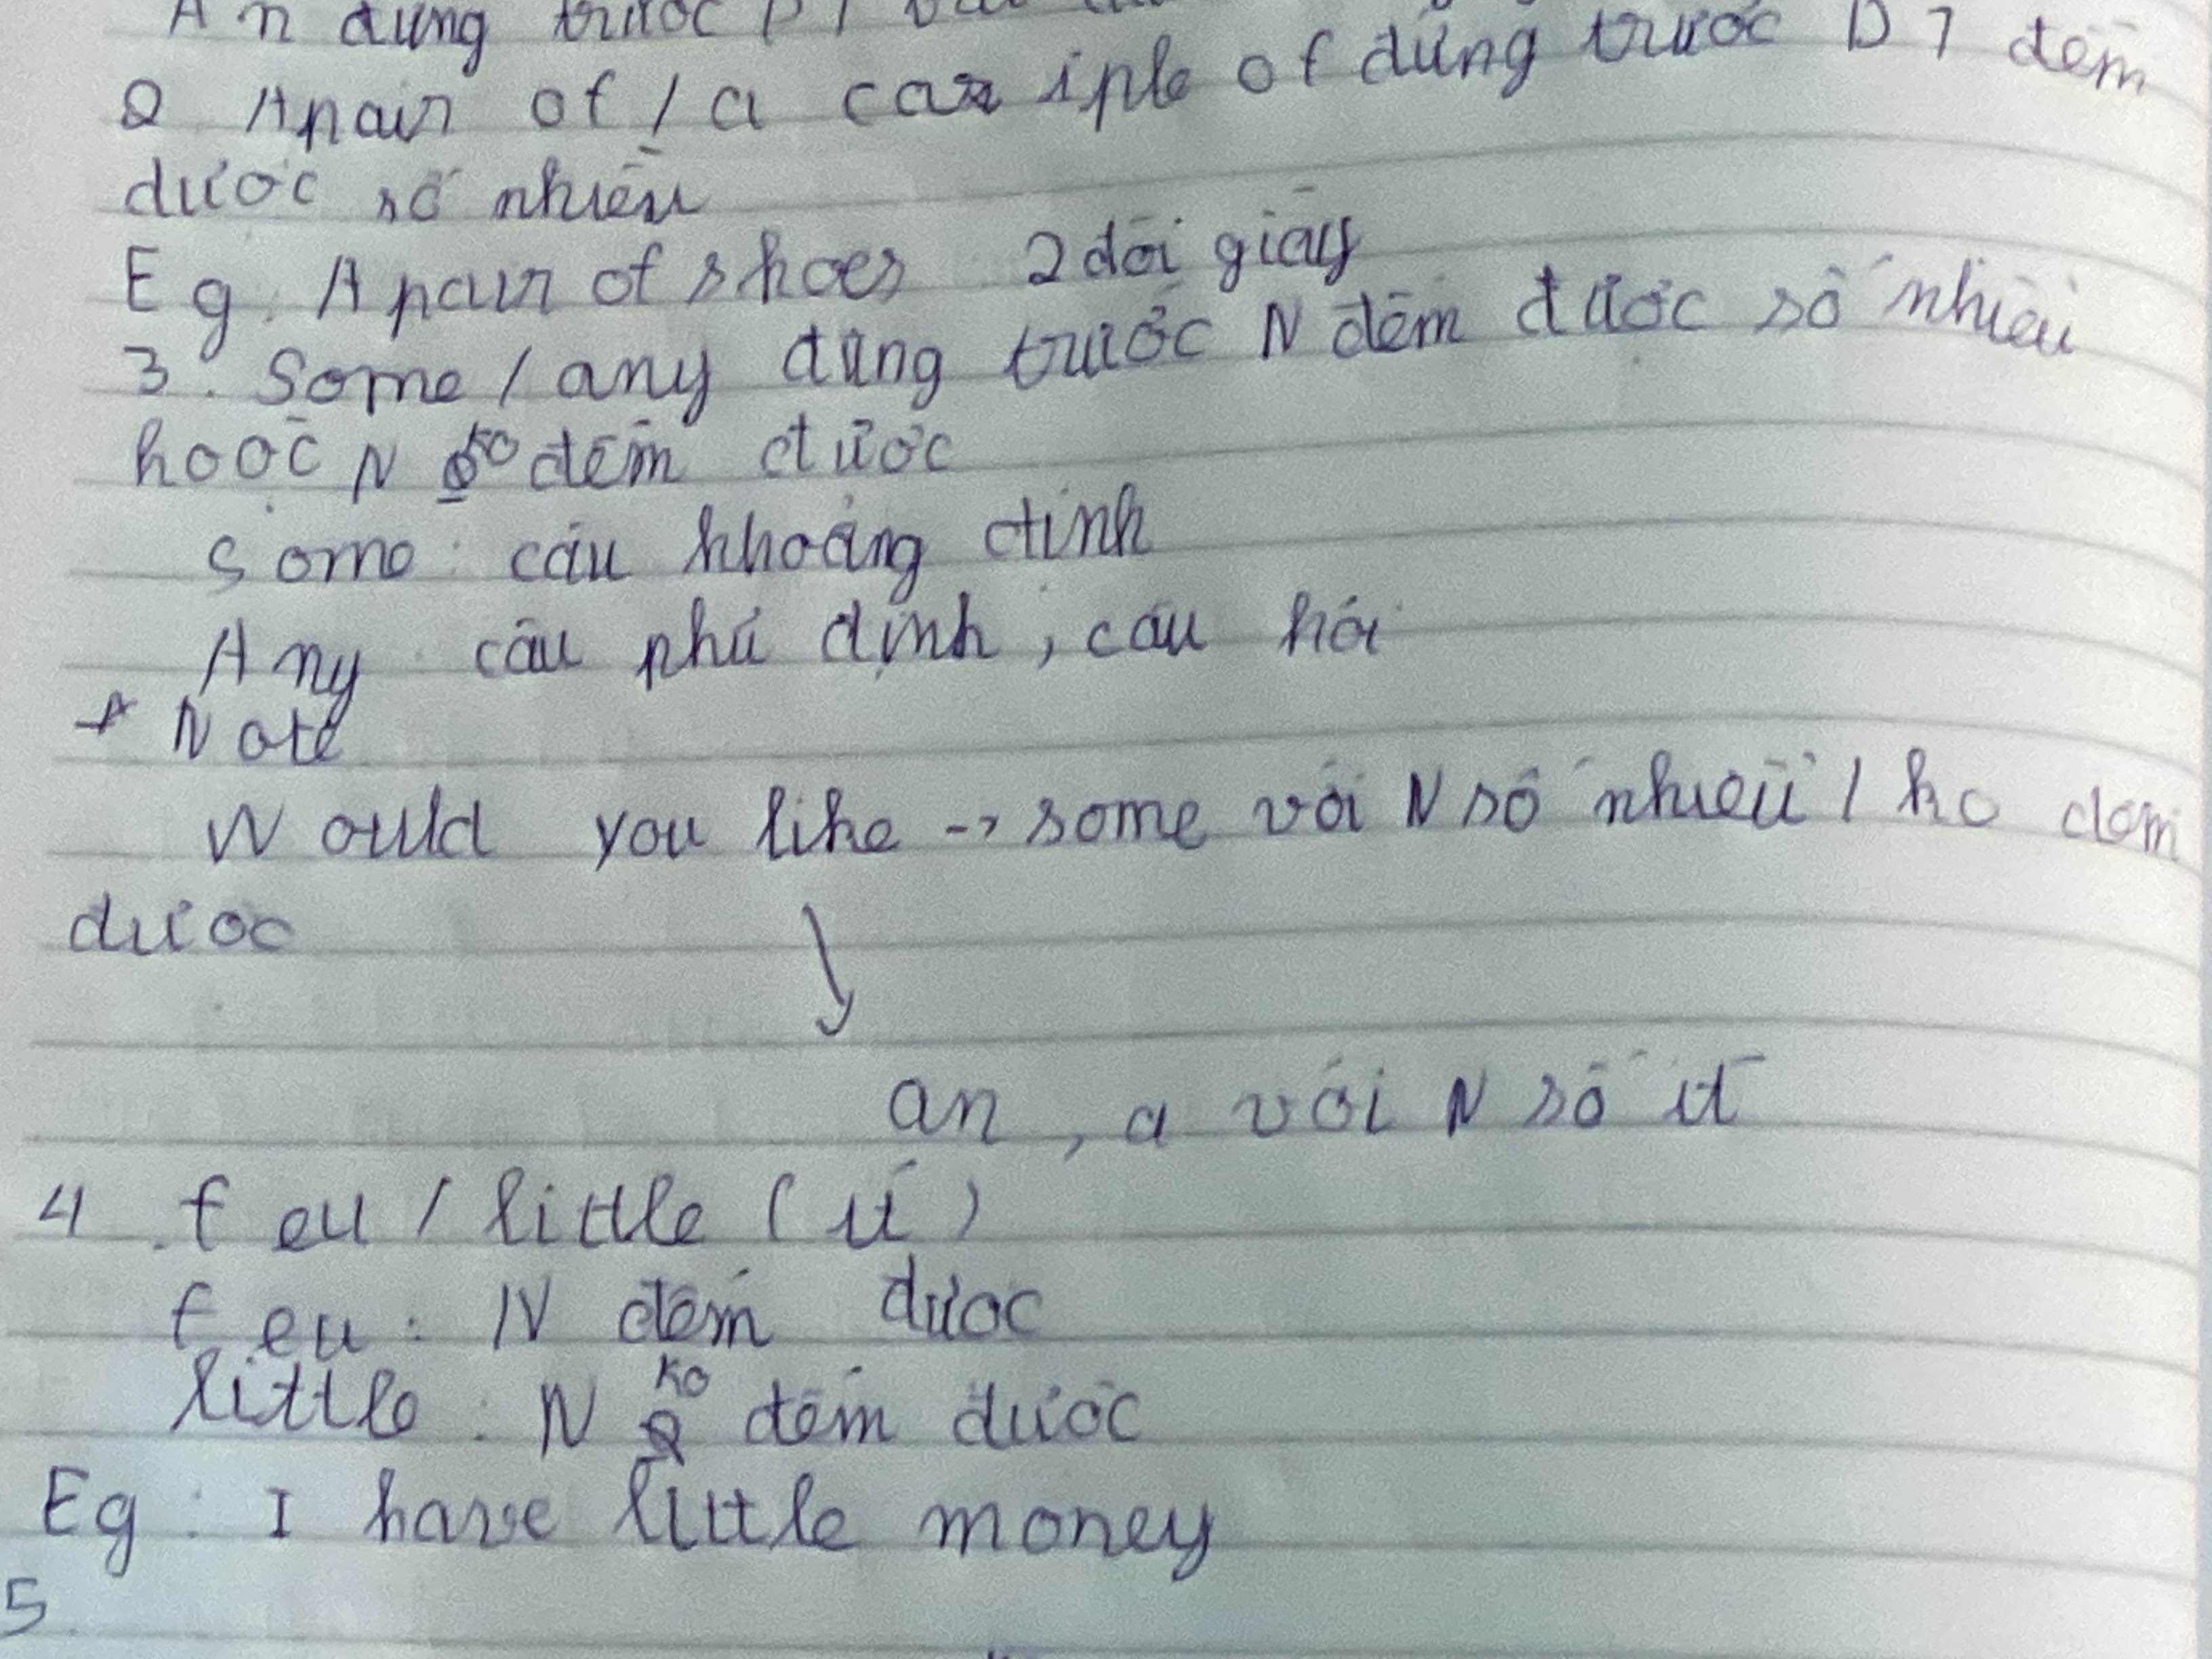 An dùng trước
2 A pair of / a couple of dùng trước DT đếm
được số nhiều
Eg. A pair of shoes : 2 đôi giầy
3. Some / any dùng trước N đếm được số nhiều
hoặc N ko đếm được
Some : câu khoảng định
Any : câu phủ định, câu hỏi
* Note
Would you like -> some với N số nhiều / ko đếm
được
an, a với N số ít
4. feu / little (ít)
feu : N đếm được
little : N ko đếm được
Eg : I have little money
5